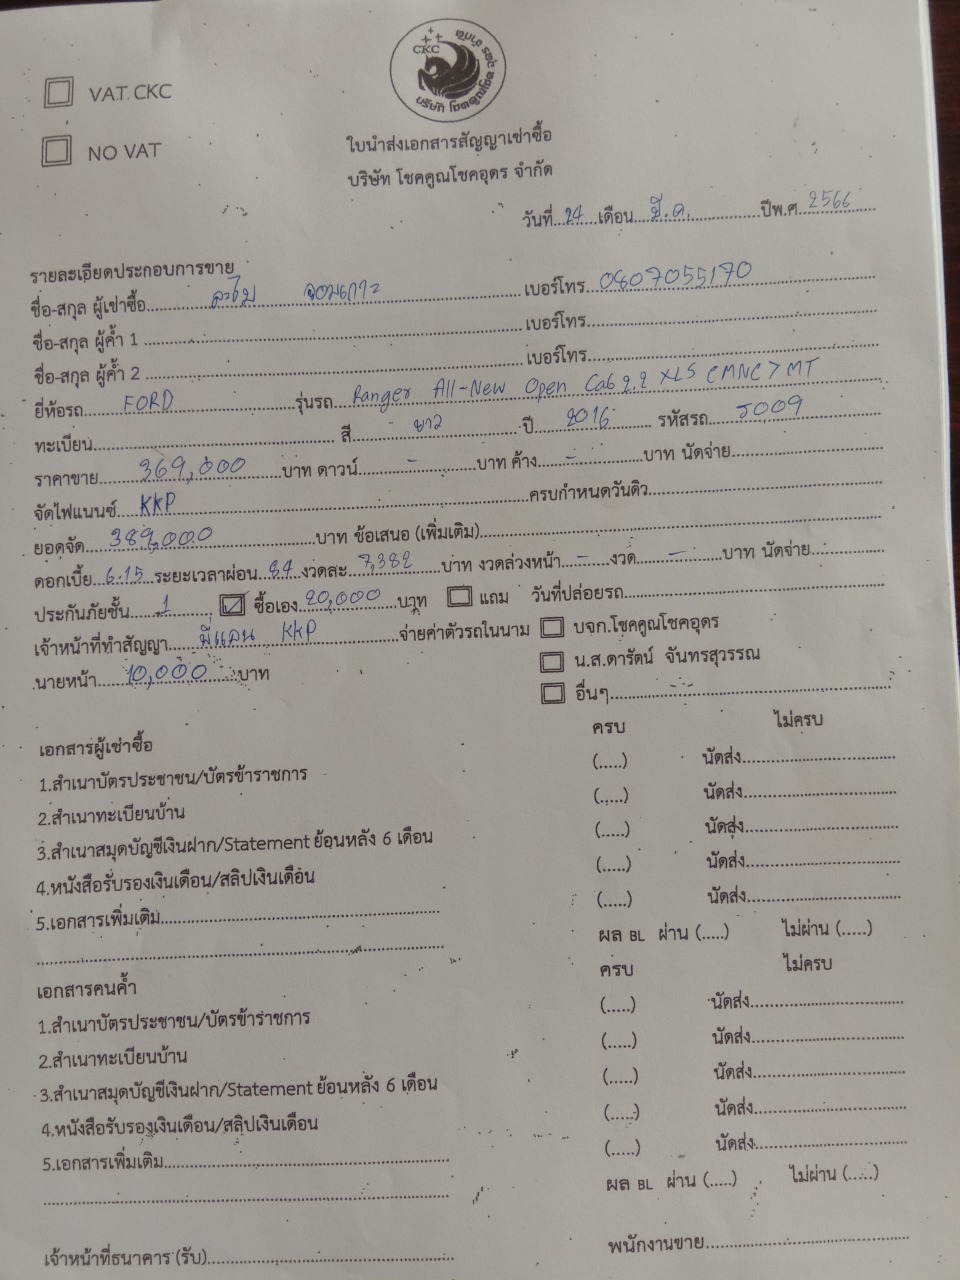 VAT. CKC
NO VAT
CKC
ใบนำส่งเอกสารสัญญาเช่าซื้อ
บริษัท โชคคูณโชคอุดร จำกัด
วันที่ 24 เดือน มี.ค. ปีพ.ศ. 2566
รายละเอียดประกอบการขาย
ชื่อ-สกุล ผู้เช่าซื้อ เบอร์โทร 0807055170
ชื่อ-สกุล ผู้ค้ำ 1 เบอร์โทร
ชื่อ-สกุล ผู้ค้ำ 2 เบอร์โทร
ยี่ห้อรถ FORD รุ่นรถ Ranger All-New Open Cab 2.2 XLS <MNC> MT
ทะเบียน สี ขาว ปี 2016 รหัสรถ 5009
ราคาขาย 369,000 บาท ดาวน์ - บาท ค้าง - บาท นัดจ่าย
จัดไฟแนนซ์ KKP ครบกำหนดวันดิว
ยอดจัด 389,000 บาท ข้อเสนอ (เพิ่มเติม)
ดอกเบี้ย 6.15 ระยะเวลาผ่อน 84 งวดละ 7,382 บาท งวดล่วงหน้า - งวด - บาท นัดจ่าย
ประกันภัยชั้น 1 ซื้อเอง 20,000 บาท แถม วันที่ปล่อยรถ
เจ้าหน้าที่ทำสัญญา KKP จ่ายค่าตัวรถในนาม บจก.โชคคูณโชคอุดร
นายหน้า 10,000 บาท น.ส.ดารัตน์ จันทรสุวรรณ
อื่นๆ
เอกสารผู้เช่าซื้อ ครบ ไม่ครบ
1.สำเนาบัตรประชาชน/บัตรข้าราชการ (.....) นัดส่ง
2.สำเนาทะเบียนบ้าน (.....) นัดส่ง
3.สำเนาสมุดบัญชีเงินฝาก/Statement ย้อนหลัง 6 เดือน (.....) นัดส่ง
4.หนังสือรับรองเงินเดือน/สลิปเงินเดือน (.....) นัดส่ง
5.เอกสารเพิ่มเติม (.....) นัดส่ง
ผล BL ผ่าน (.....) ไม่ผ่าน (.....)
เอกสารคนค้ำ ครบ ไม่ครบ
1.สำเนาบัตรประชาชน/บัตรข้าราชการ (.....) นัดส่ง
2.สำเนาทะเบียนบ้าน (.....) นัดส่ง
3.สำเนาสมุดบัญชีเงินฝาก/Statement ย้อนหลัง 6 เดือน (.....) นัดส่ง
4.หนังสือรับรองเงินเดือน/สลิปเงินเดือน (.....) นัดส่ง
5.เอกสารเพิ่มเติม (.....) นัดส่ง
ผล BL ผ่าน (.....) ไม่ผ่าน (.....)
เจ้าหน้าที่ธนาคาร (รับ) พนักงานขาย